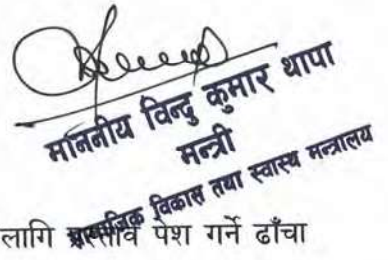 माननीय विन्दु कुमार थापा
मन्त्री
सामाजिक विकास तथा स्वास्थ्य मन्त्रालय
लागि प्रस्ताव पेश गर्ने ढाँचा